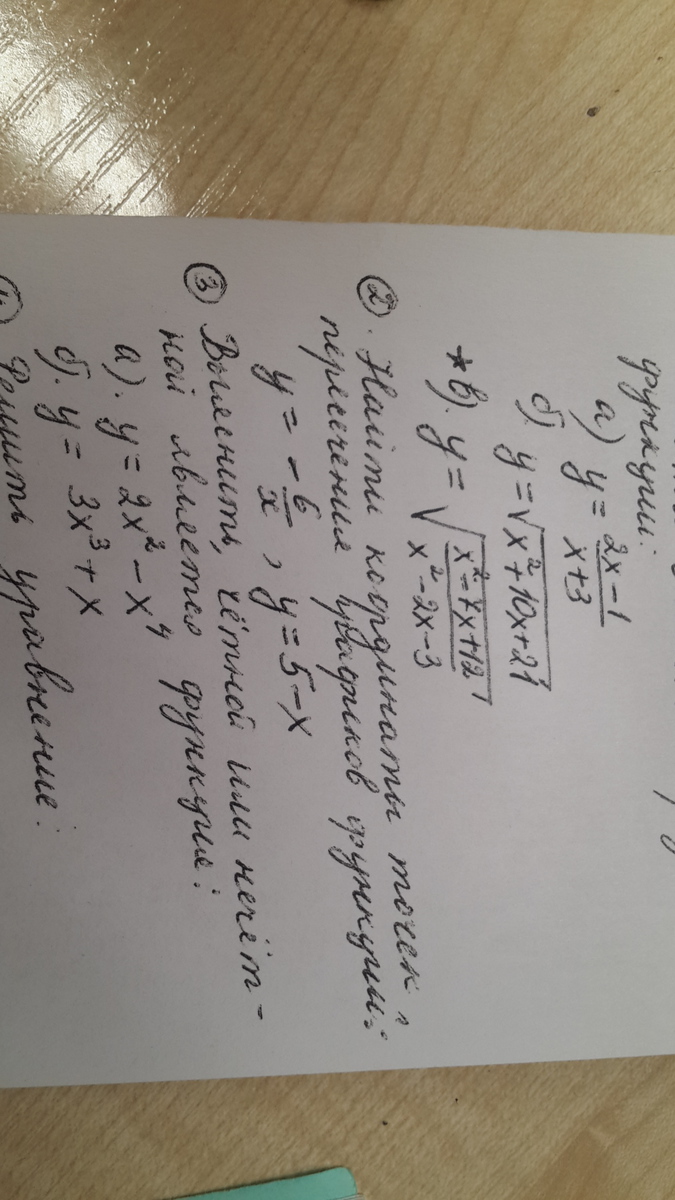 функции:
а) y = \frac{2x-1}{x+3}
б). y = \sqrt{x^2+10x+21}
*в). y = \sqrt{\frac{x^2-7x+12}{x^2-2x-3}}
②. Найти координаты точек
пересечения графиков функций:
y = -\frac{6}{x}, y = 5-x
③ Выяснить, чётной или нечёт-
ной является функция:
а). y = 2x^2 - x^4
б). y = 3x^3 + x
④ Решить уравнение: